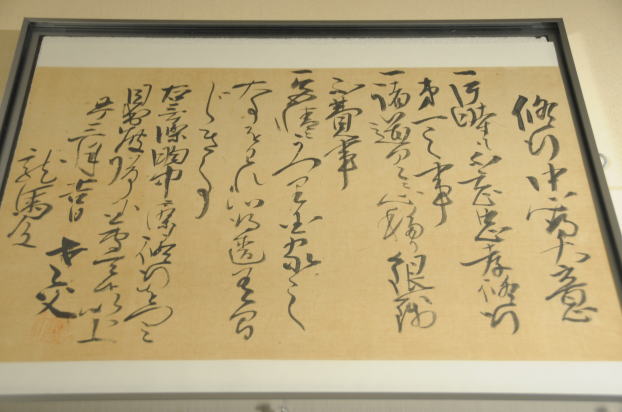 修行中心得大意
一片時も不忘忠孝修行
第一之事
一諸道具ニ心移り銀銭
不費事
一色情ニうつり国家之
大事をわすれ心得違有間
じき事
右三ヶ條胸中ニ染修行をつミ
目出度帰国専一ニ候以上
丑ノ三月吉日 老父
龍馬殿